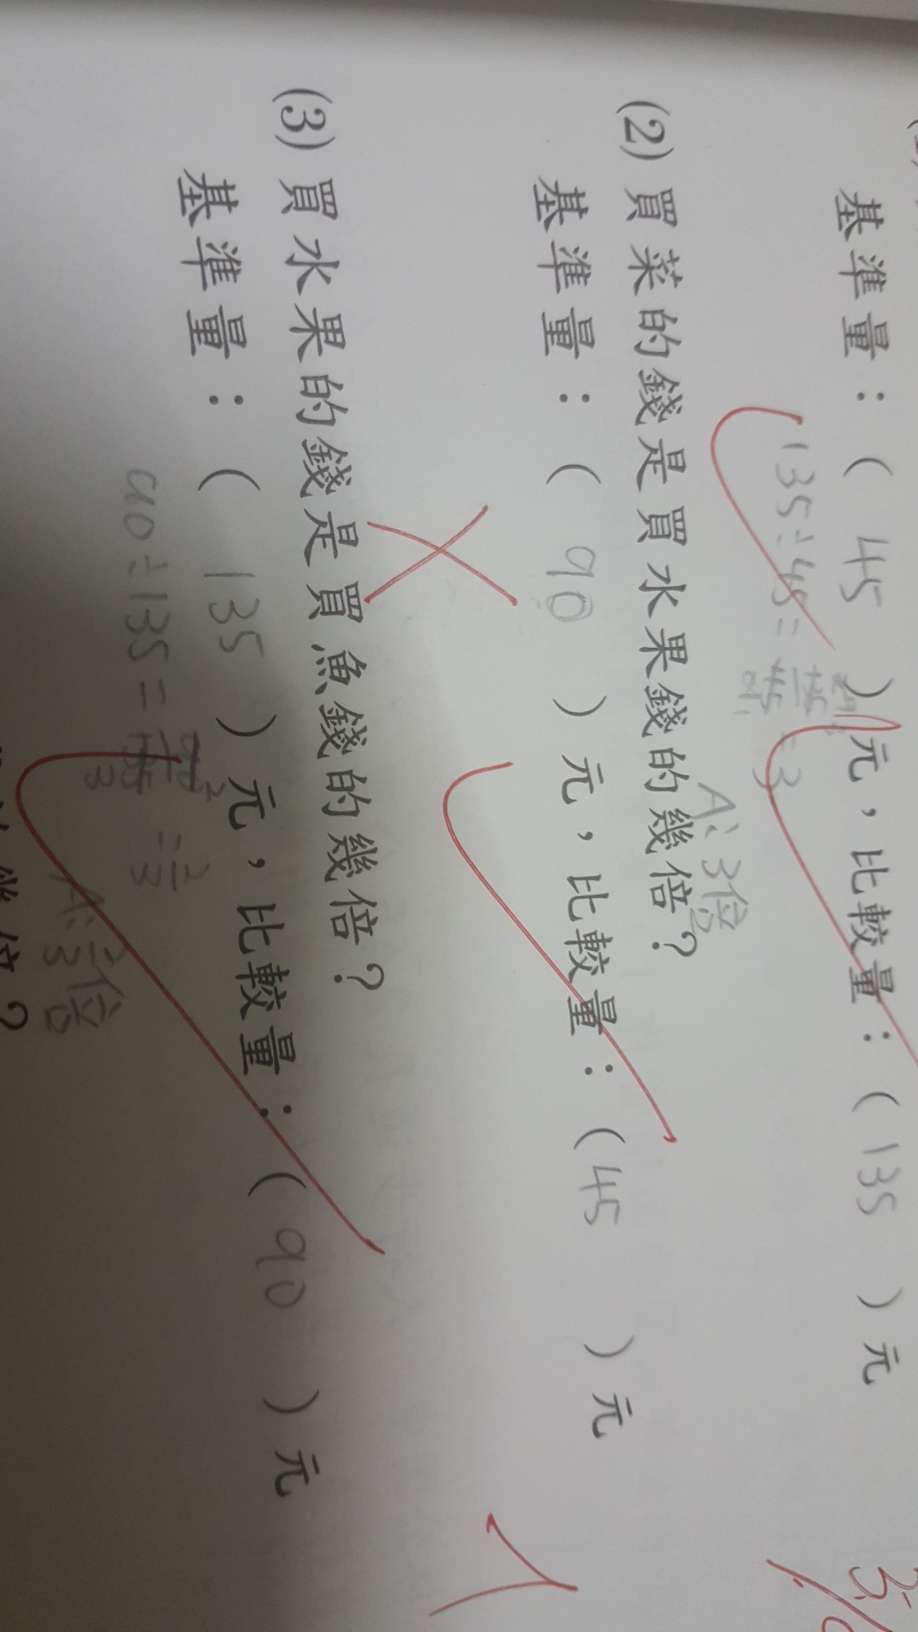 基準量：( 45 )元，比較量：( 135 )元
135÷45= =3
A: 3倍
(2) 買菜的錢是買水果錢的幾倍？
基準量：( 90 )元，比較量：( 45 )元
(3) 買水果的錢是買魚錢的幾倍？
基準量：( 135 )元，比較量：( 90 )元
90÷135= =2/3
A: 2/3倍
倍？